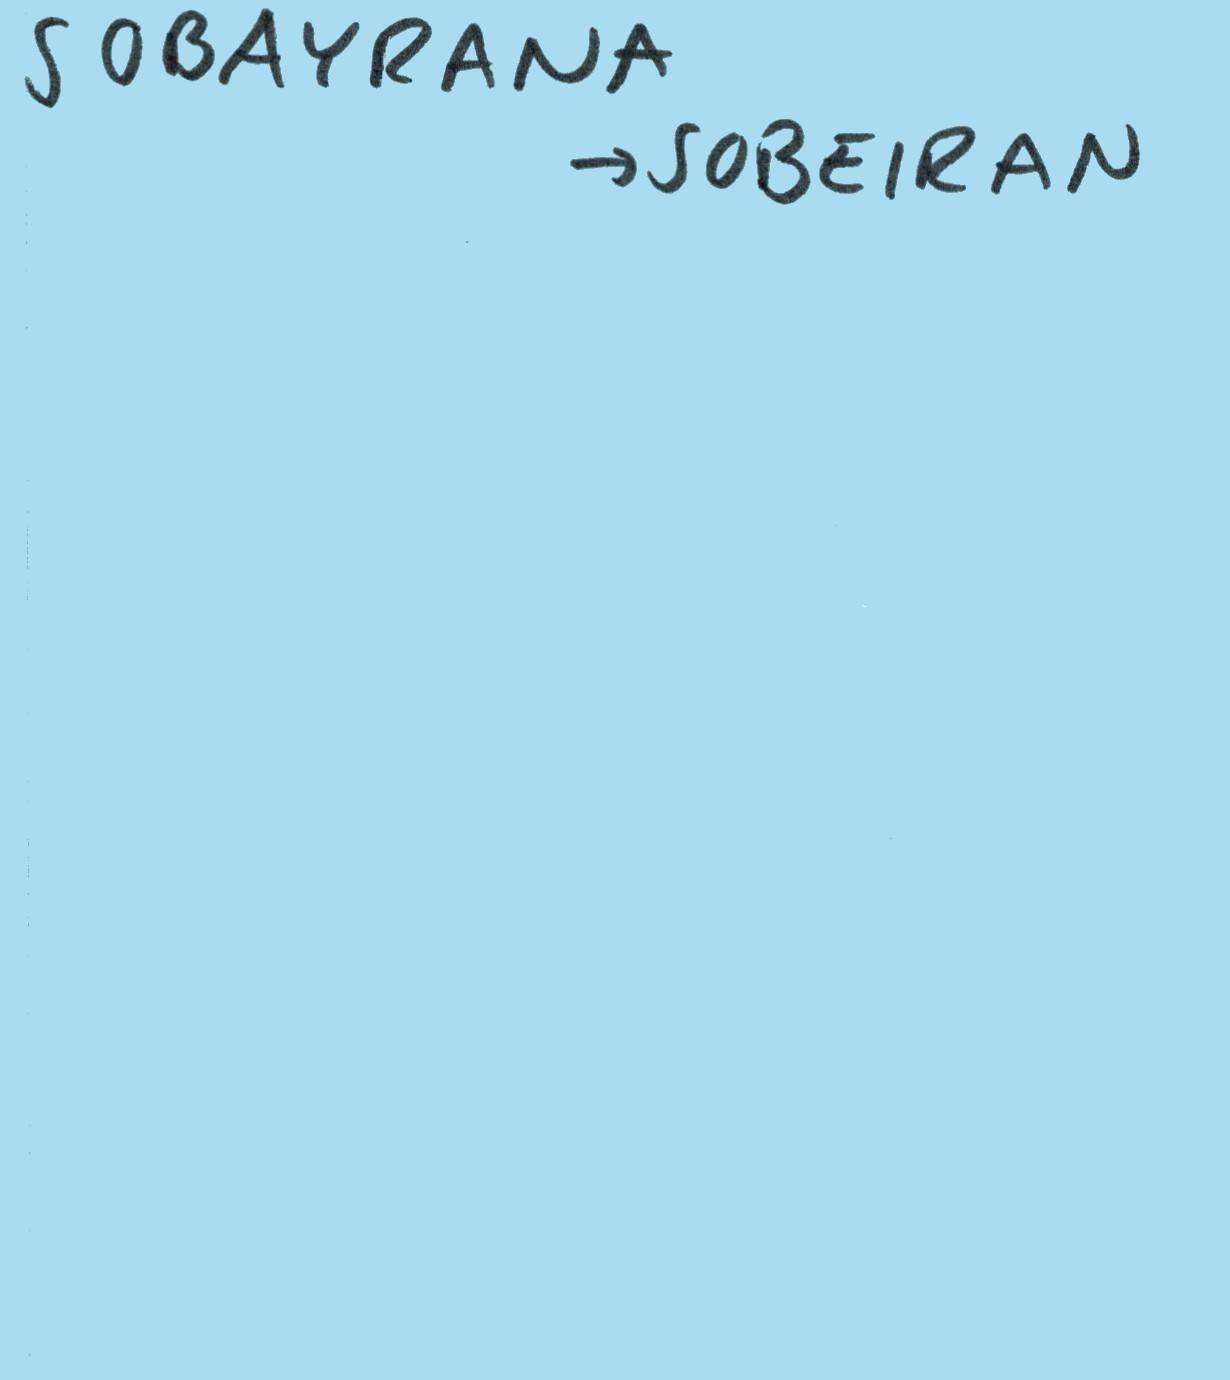 SOBAYRANA
→SOBEIRAN